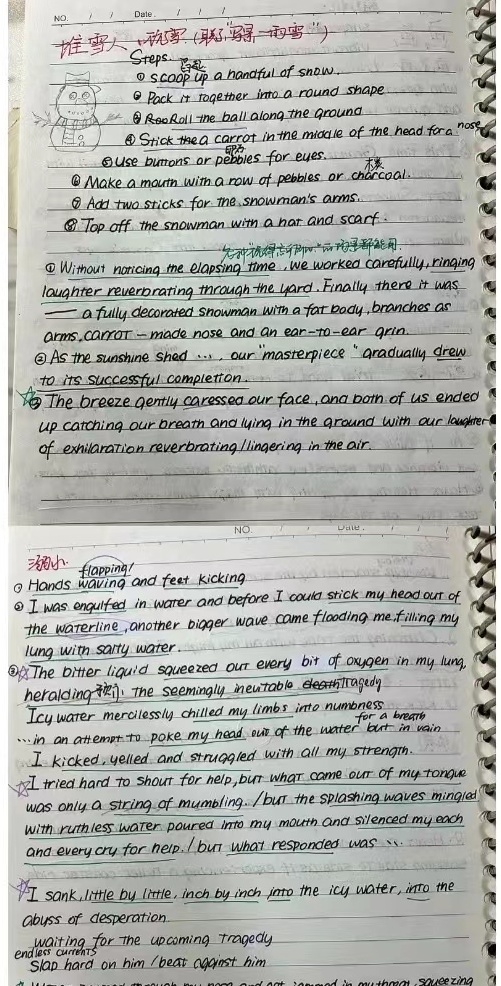 NO. / / Date. / /
堆雪人、玩雪（聚"雪景—雨雪"）
Steps
舀起
① scoop up a handful of snow.
② Pack it together into a round shape
③ Roll the ball along the ground
④ Stick a carrot in the middle of the head for a nose
⑤ Use buttons or pebbles for eyes.
⑥ Make a mouth with a row of pebbles or charcoal.
⑦ Add two sticks for the snowman's arms.
⑧ Top off the snowman with a hat and scarf.
① Without noticing the elapsing time, we worked carefully, ringing
laughter reverbrating through the yard. Finally there it was
— a fully decorated snowman with a fat body, branches as
arms, carrot-made nose and an ear-to-ear grin.
② As the sunshine shed ..., our "masterpiece" gradually drew
to its successful completion.
③ The breeze gently caressed our face, and both of us ended
up catching our breath and lying in the ground with our laughter
of exhilaration reverbrating/lingering in the air.
NO. / / Date. / /
溺水.
flapping/
① Hands waving and feet kicking
② I was engulfed in water and before I could stick my head out of
the waterline, another bigger wave came flooding me, filling my
lung with salty water.
③ The bitter liquid squeezed out every bit of oxygen in my lung,
heralding the seemingly ineutable death tragedy
Icy water mercilessly chilled my limbs into numbness
for a breath
... in an attempt to poke my head out of the water but in vain
I kicked, yelled and struggled with all my strength.
I tried hard to shout for help, but what came out of my tongue
was only a string of mumbling. /but the splashing waves mingled
with ruthless water poured into my mouth and silenced my each
and every cry for help. / but what responded was ...
I sank, little by little, inch by inch, into the icy water, into the
abyss of desperation.
waiting for the upcoming tragedy
endless currents
Slap hard on him / beat against him